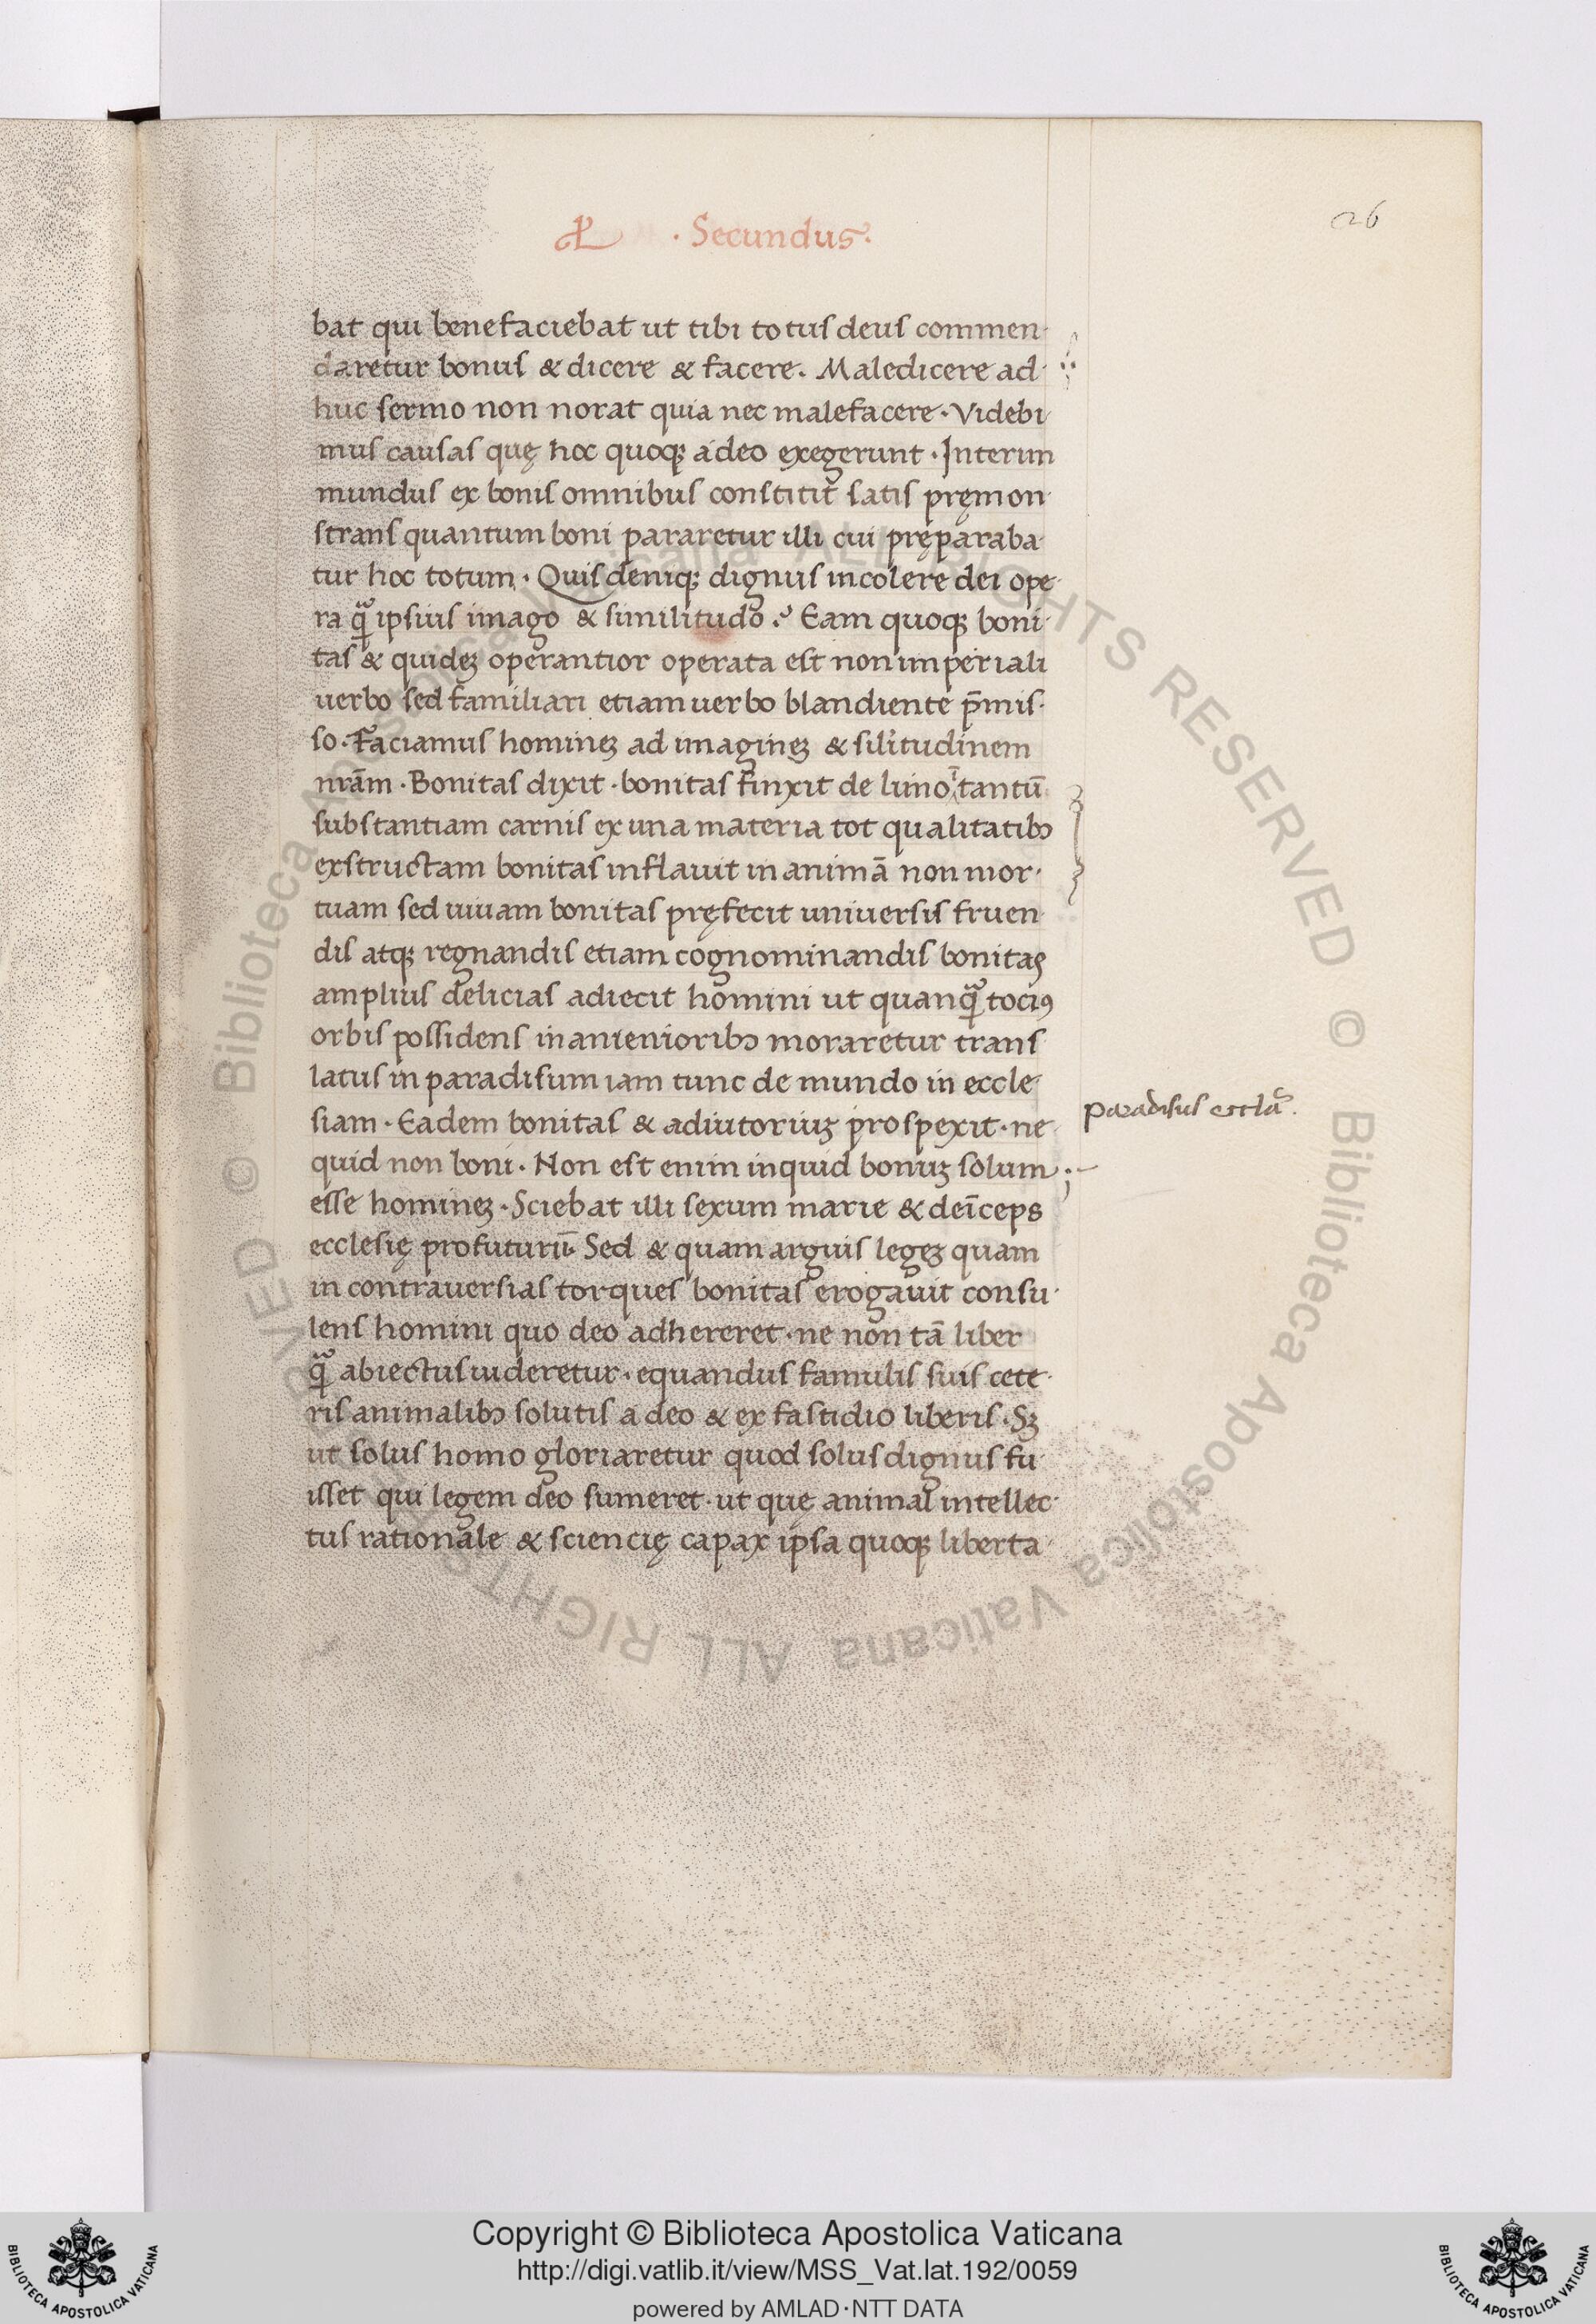 · Secundus ·
26
bat qui benefaciebat ut tibi totus deus commen·
daretur bonus & dicere & facere. Maledicere ad·
huc sermo non norat quia nec malefacere. Videbi
mus causas quę hoc quoqꝫ a deo exegerunt · Interim
mundus ex bonis omnibus constitit satis pręmon·
strans quantum boni pararetur illi cui pręparaba
tur hoc totum · Quis deniqꝫ dignus incolere dei ope·
ra qᷓ ipsius imago & similitudo? Eam quoqꝫ boni·
tas & quideꝫ operantior operata est non imperiali
uerbo sed familiari etiam uerbo blandiente p̄mis·
so · Faciamus homineꝫ ad imagineꝫ & silitudinem
nr̄am · Bonitas dixit · bonitas finxit de limo ī tantū
substantiam carnis ex una materia tot qualitatibꝰ
exstructam bonitas inflauit in animā non mor·
tuam sed uiuam bonitas pręfecit uniuersis fruen
dis atqꝫ regnandis etiam cognominandis bonitas
amplius delicias adiecit homini ut quanqᷓ tociꝰ
orbis possidens in anienioribꝰ moraretur trans
latus in paradisum iam tunc de mundo in eccle
siam · Eadem bonitas & adiutoriuꝫ prospexit · ne
quid non boni · Non est enim inquid bonuꝫ solum
esse homineꝫ · Sciebat illi sexum marie & deīceps
ecclesię profuturū. Sed & quam arguis legeꝫ quam
in contrauersias torques bonitas erogauit consu·
lens homini quo deo adhereret · ne non tā liber
qᷓ abiectus uideretur · equandus famulis suis cete·
ris animalibꝰ solutis a deo & ex fastidio liberis · Sꝫ
ut solus homo gloriaretur quod solus dignus fu·
isset qui legem deo sumeret · ut quę animal intellec·
tus rationale & sciencię capax ipsa quoqꝫ liberta·
paradisus eccła.
© Biblioteca Apostolica Vaticana ALL RIGHTS RESERVED © Biblioteca Apostolica Vaticana ALL RIGHTS RESERVED
Copyright © Biblioteca Apostolica Vaticana
http://digi.vatlib.it/view/MSS_Vat.lat.192/0059
powered by AMLAD·NTT DATA
BIBLIOTECA APOSTOLICA VATICANA
BIBLIOTECA APOSTOLICA VATICANA